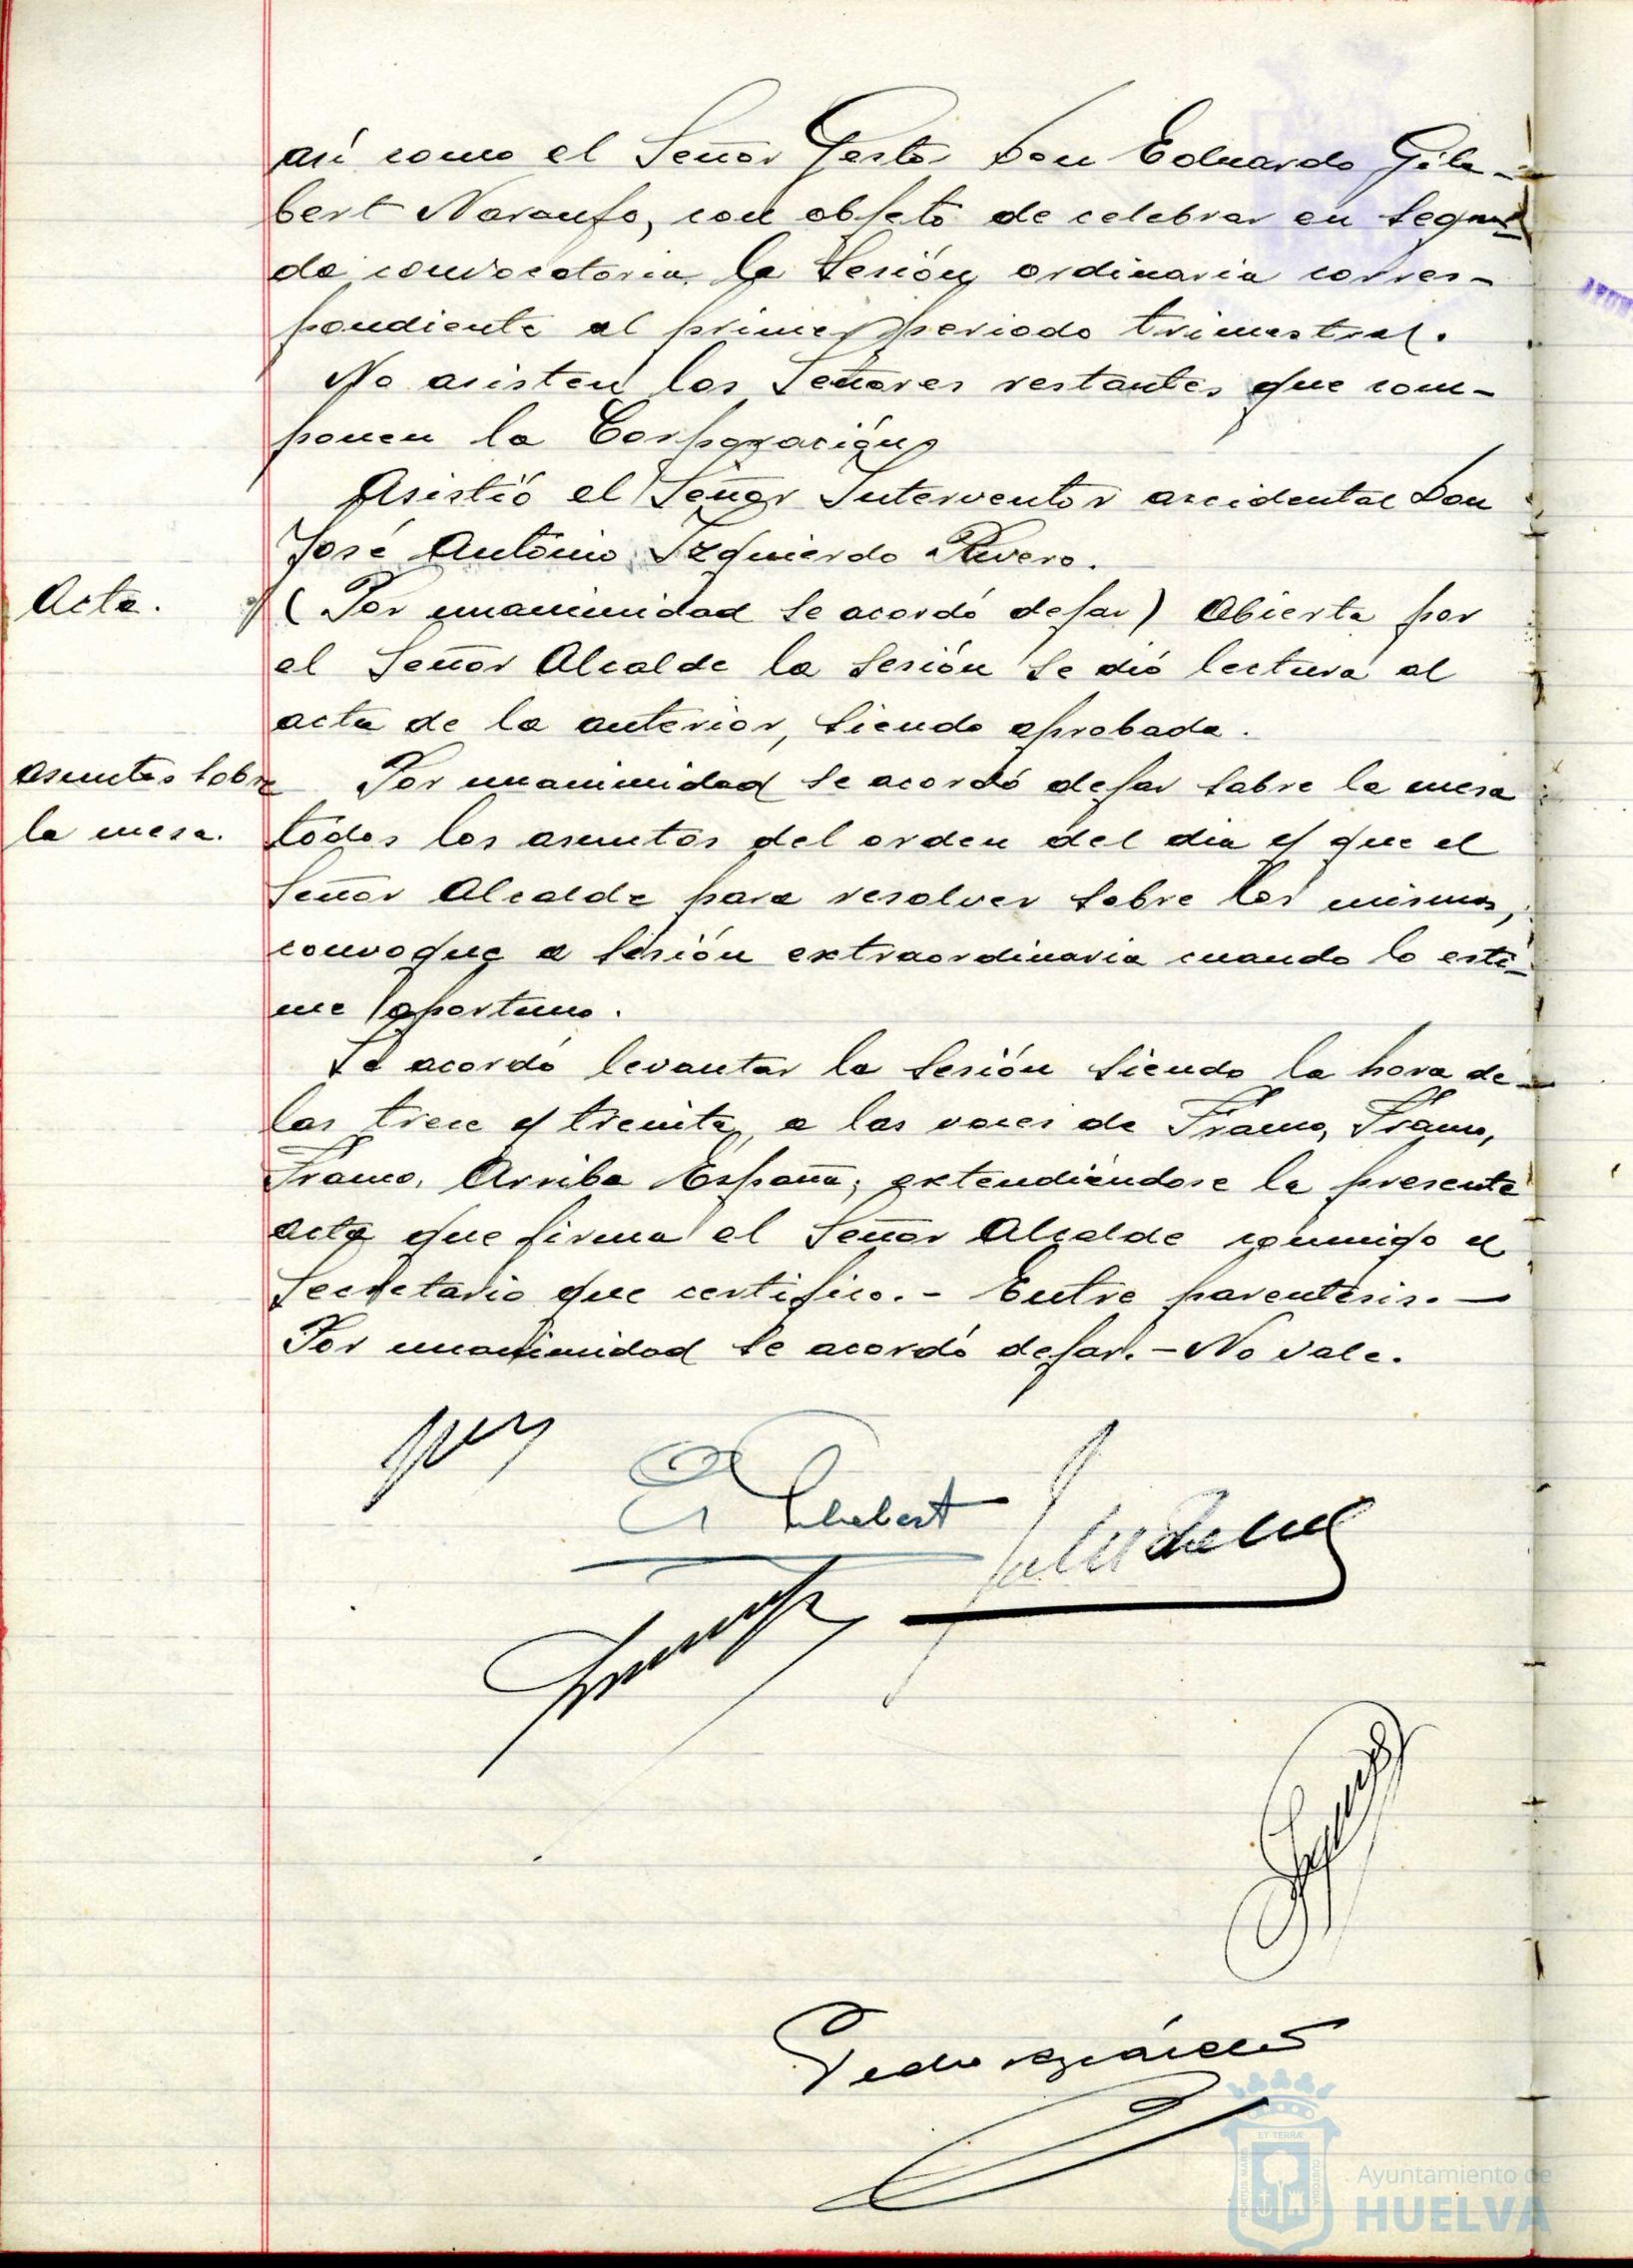 así como el Señor Gestor Don Eduardo Gila-
bert Naranjo, con objeto de celebrar en segun-
da convocatoria la sesión ordinaria corres-
pondiente al primer periodo trimestral.
No asisten los Señores restantes que com-
ponen la Corporación
Asistió el Señor Interventor accidental Don
José Antonio Izquierdo Rivero.
Acta. (Por unanimidad se acordó dejar) Abierta por
el Señor Alcalde la sesión se dió lectura al
acta de la anterior, siendo aprobada.
Asuntos sobre Por unanimidad se acordó dejar sobre la mesa
la mesa. todos los asuntos del orden del día y que el
Señor Alcalde para resolver sobre los mismos,
convoque a sesión extraordinaria cuando lo esti-
me oportuno.
Se acordó levantar la sesión siendo la hora de
las trece y treinta, a las voces de Franco, Franco,
Franco, Arriba España; extendiéndose la presente
acta que firma el Señor Alcalde conmigo el
Secretario que certifico.- Entre parentesis.-
Por unanimidad se acordó dejar.-No vale.
Gilabert
Pedro
ET TERRÆ
Ayuntamiento de
HUELVA